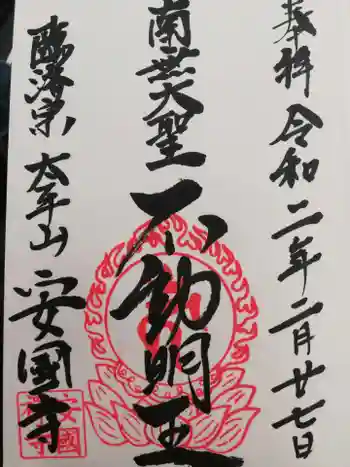 奉拝 令和二年二月廿七日
南無大聖不動明王
臨済宗 太平山 安國寺